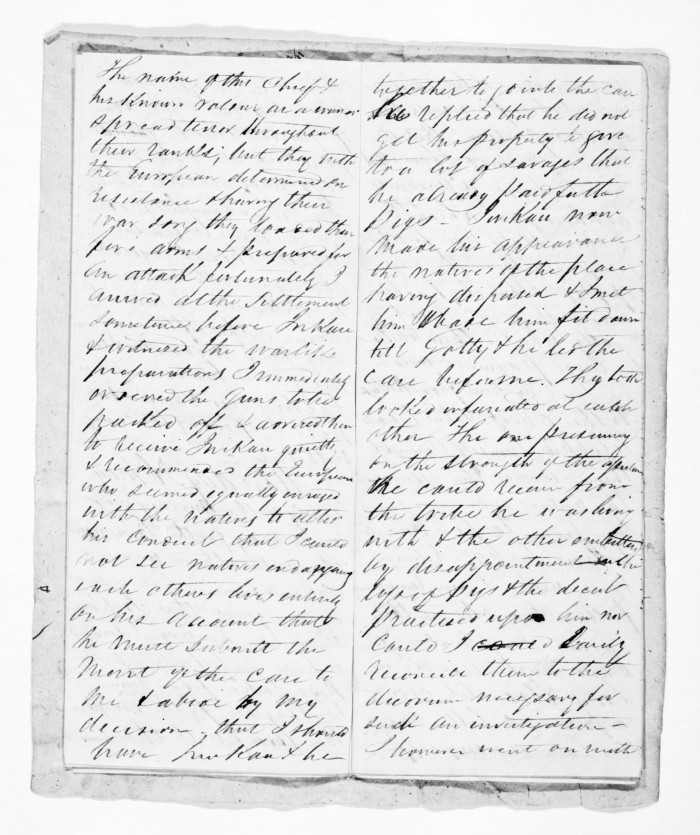 The name of this Chief &
his known valour as a warrior
spread terror throughout
their ranks; but they with
the European determined on
resistance & having their
war song they loaded their
fire arms & prepared for
an attack fortunately I
arrived at the Settlement
sometime before Inikau
& witnessed the warlike
preparations I immediately
ordered the guns to be
packed off & advised them
to receive Inikau quietly
& recommended the European
who seemed equally enraged
with the Natives to alter
his conduct that I could
not see natives endangering
each others lives entirely
on his account that
he must submit the
Merit of the case to
me & abide by my
decision that I should
have Inikau & he
together to go into the case
He replied that he did not
get his property to give
to a lot of savages that
he already paid for the
Pigs – Inikau now
made his appearance
the natives of the place
having dispersed & I met
him & made him sit down
till Gotty & he led the
Case before me. They both
looked infuriated at each
other The one presuming
on the strength of the
he could receive from
the tribe he was living
with & the other embittered
by disappointment in the
loss of Pigs & the deceit
practised upon him nor
could I easily
reconcile them to the
decorum necessary for
such an investigation –
I however went on with